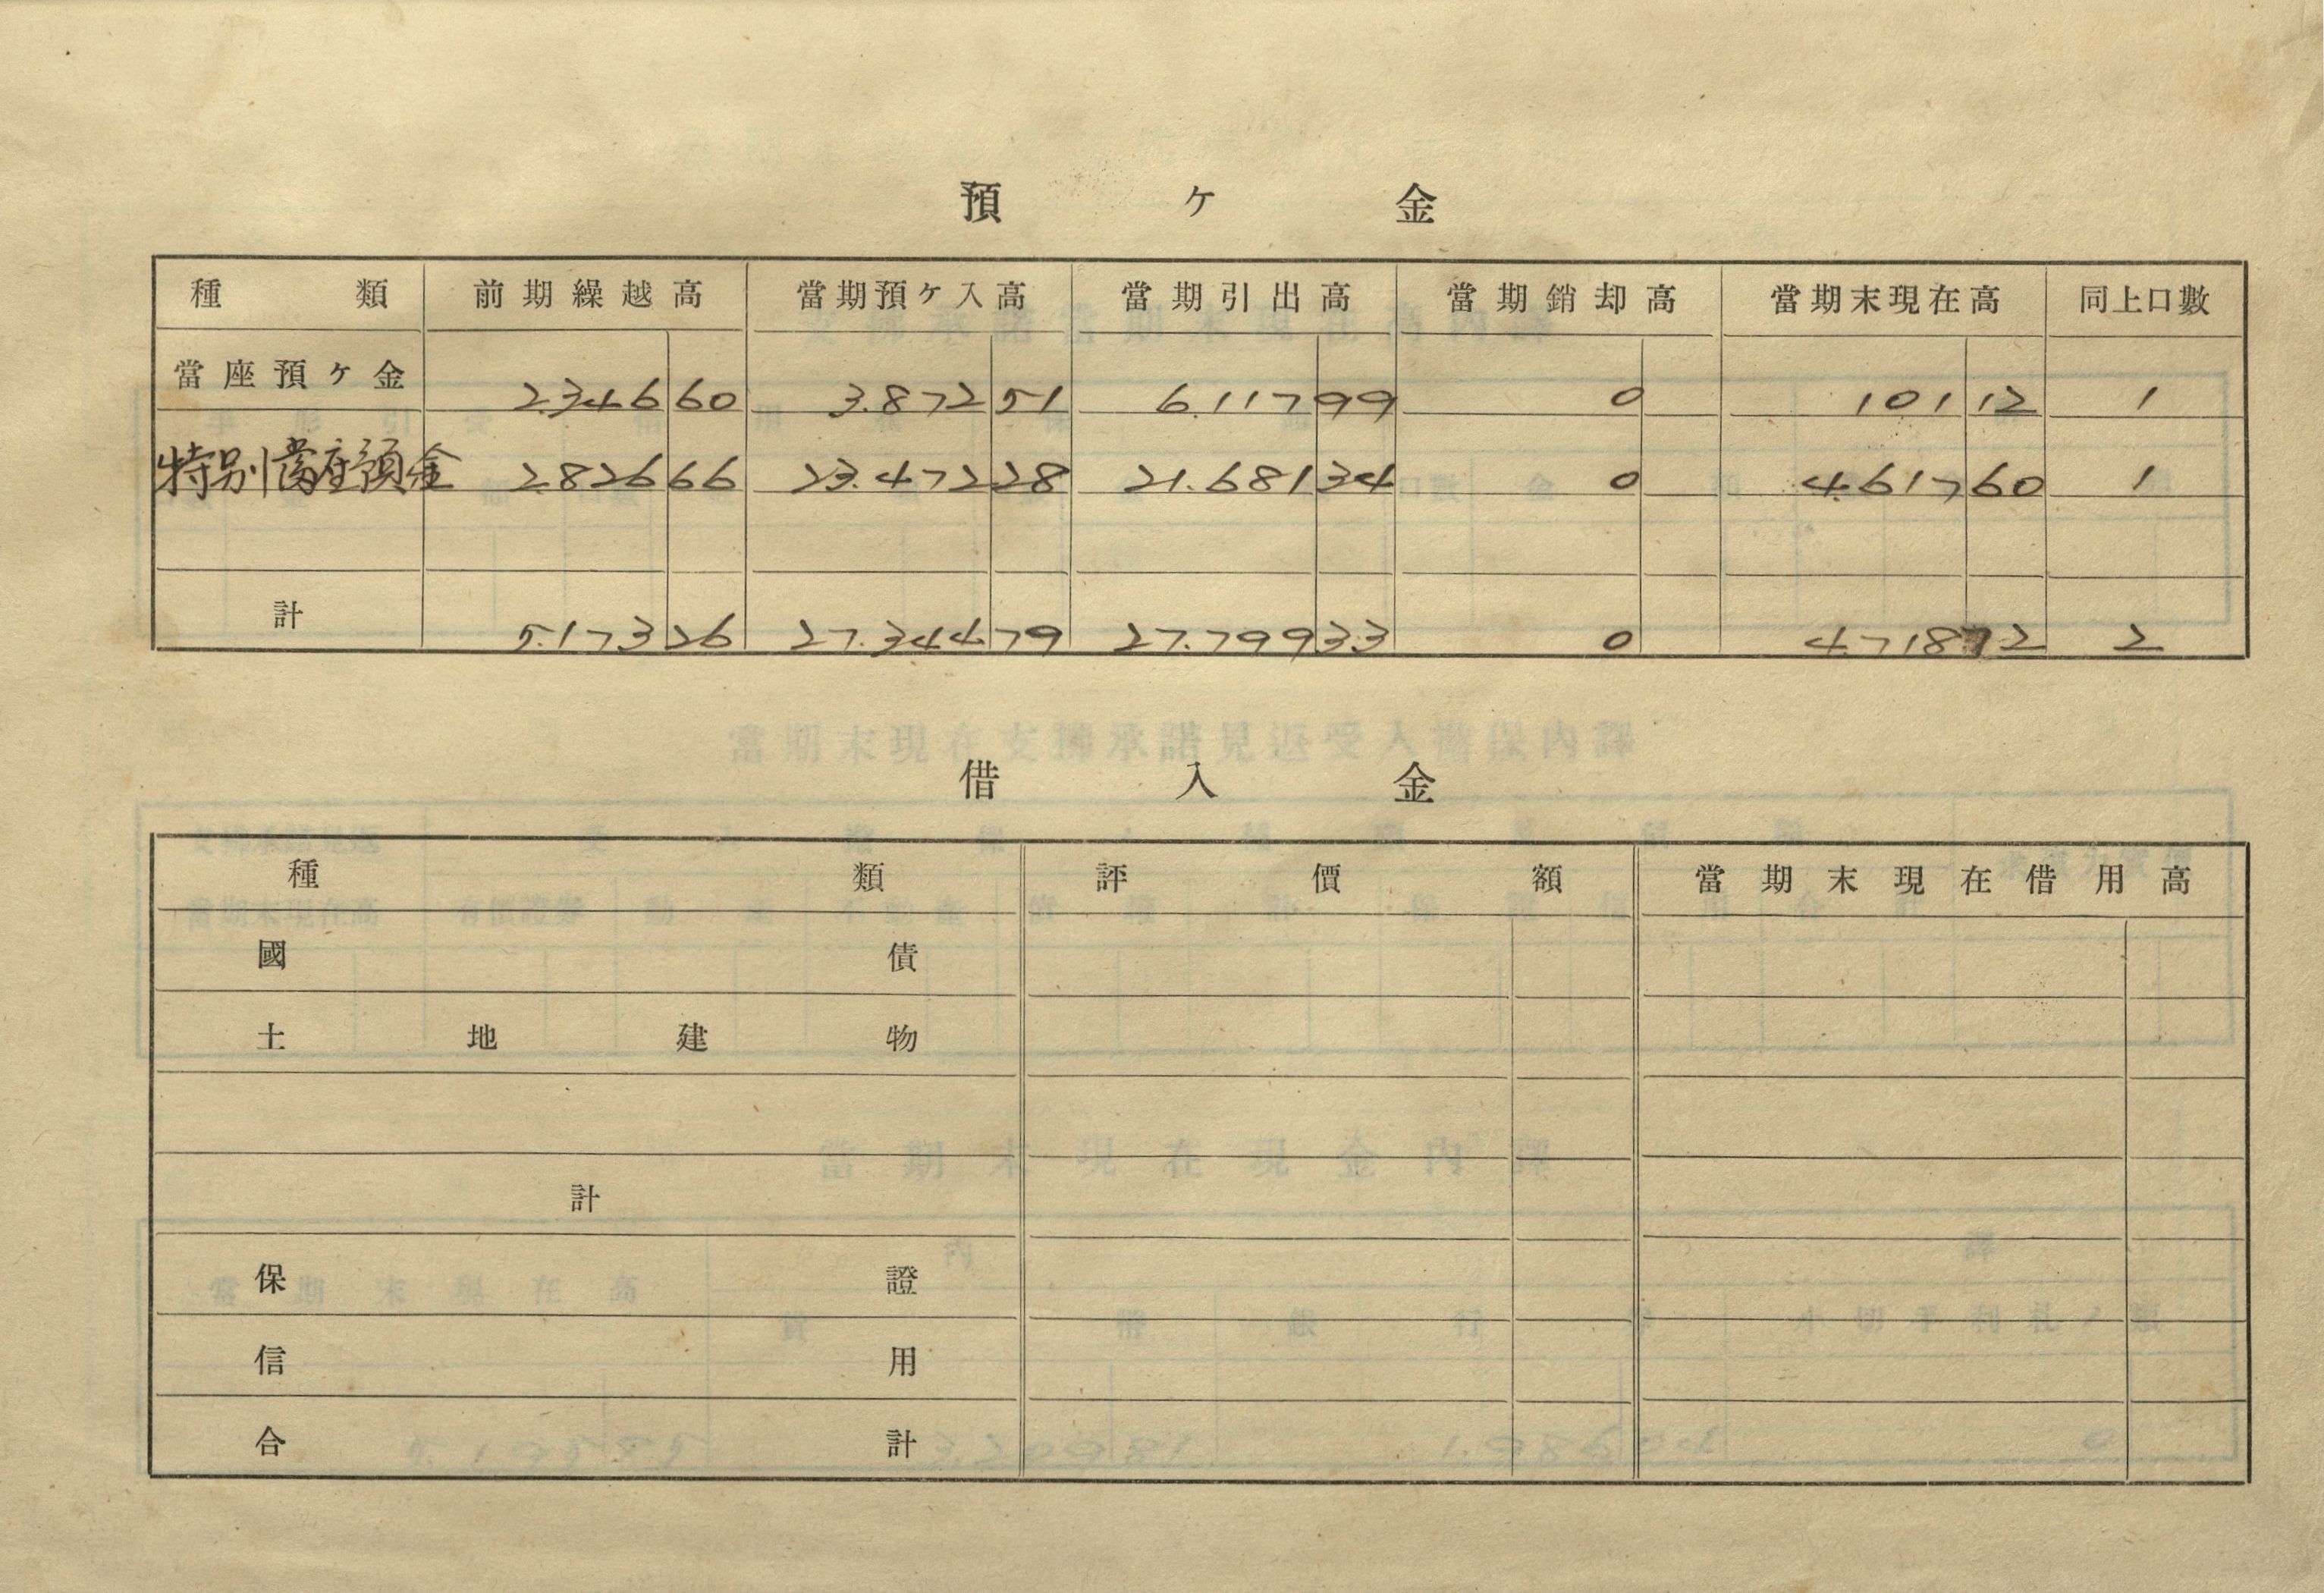 預ケ金
種類 前期繰越高 當期預ケ入高 當期引出高 當期銷却高 當期末現在高 同上口數
當座預ケ金 2.346 60 3.872 51 6.117 99 0 101 12 1
特别當座預金 2.826 66 23.472 28 21.681 34 0 4.617 60 1
計 5.173 26 27.344 79 27.799 33 0 4.718 72 2
借入金
種類 評價額 當期末現在借用高
國債
土地建物
計
保證
信用
合計